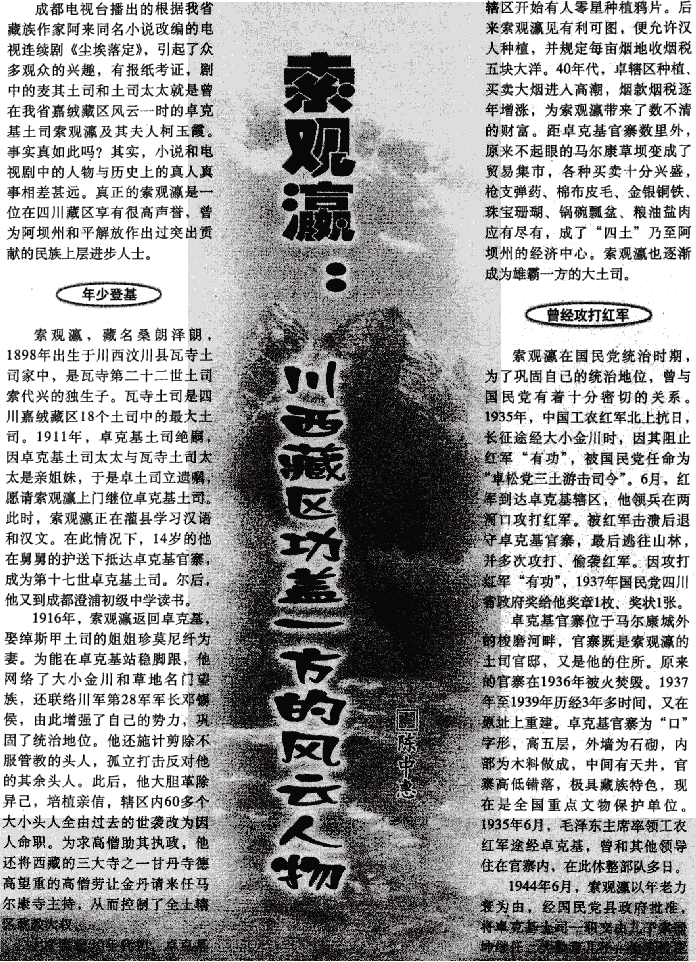 成都电视台播出的根据我省
藏族作家阿来同名小说改编的电
视连续剧《尘埃落定》，引起了众
多观众的兴趣，有报纸考证，剧
中的麦其土司和土司太太就是曾
在我省嘉绒藏区风云一时的卓克
基土司索观瀛及其夫人柯玉霞。
事实真如此吗？其实，小说和电
视剧中的人物与历史上的真人真
事相差甚远。真正的索观瀛是一
位在四川藏区享有很高声誉，曾
为阿坝州和平解放作出过突出贡
献的民族上层进步人士。
年少登基
索观瀛，藏名桑朗泽朗，
1898年出生于川西汶川县瓦寺土
司家中，是瓦寺第二十二世土司
索代兴的独生子。瓦寺土司是四
川嘉绒藏区18个土司中的最大土
司。1911年，卓克基土司绝嗣，
因卓克基土司太太与瓦寺土司太
太是亲姐妹，于是卓土司立遗嘱，
愿请索观瀛上门继位卓克基土司。
此时，索观瀛正在灌县学习汉语
和汉文。在此情况下，14岁的他
在舅舅的护送下抵达卓克基官寨，
成为第十七世卓克基土司。尔后，
他又到成都澄浦初级中学读书。
1916年，索观瀛返回卓克基，
娶绰斯甲土司的姐姐珍莫尼纤为
妻。为能在卓克基站稳脚跟，他
网络了大小金川和草地名门望
族，还联络川军第28军军长邓锡
侯，由此增强了自己的势力，巩
固了统治地位。他还施计剪除不
服管教的头人，孤立打击反对他
的其余头人。此后，他大胆革除
异己，培植亲信，辖区内60多个
大小头人全由过去的世袭改为因
人命职。为求高僧助其执政，他
还将西藏的三大寺之一甘丹寺德
高望重的高僧劳让金丹请来任马
尔康寺主持，从而控制了全土辖
区
索观瀛：
川西藏区功盖一方的风云人物
陈中惠
辖区开始有人零星种植鸦片。后
来索观瀛见有利可图，便允许汉
人种植，并规定每亩烟地收烟税
五块大洋。40年代，卓辖区种植、
买卖大烟进入高潮，烟款烟税逐
年增涨，为索观瀛带来了数不清
的财富。距卓克基官寨数里外，
原来不起眼的马尔康草坝变成了
贸易集市，各种买卖十分兴盛，
枪支弹药、棉布皮毛、金银铜铁、
珠宝珊瑚、锅碗瓢盆、粮油盐肉
应有尽有，成了“四土”乃至阿
坝州的经济中心。索观瀛也逐渐
成为雄霸一方的大土司。
曾经攻打红军
索观瀛在国民党统治时期，
为了巩固自己的统治地位，曾与
国民党有着十分密切的关系。
1935年，中国工农红军北上抗日，
长征途经大小金川时，因其阻止
红军“有功”，被国民党任命为
“卓松党三土游击司令”。6月，红
军到达卓克基辖区，他领兵在两
河口攻打红军。被红军击溃后退
守卓克基官寨，最后逃往山林，
并多次攻打、偷袭红军。因攻打
红军“有功”，1937年国民党四川
省政府奖给他奖章1枚、奖状1张。
卓克基官寨位于马尔康城外
的梭磨河畔，官寨既是索观瀛的
土司官邸，又是他的住所。原来
的官寨在1936年被火焚毁。1937
年至1939年历经3年多时间，又在
原址上重建。卓克基官寨为“口”
字形，高五层，外墙为石砌，内
部为木料做成，中间有天井，官
寨高低错落，极具藏族特色，现
在是全国重点文物保护单位。
1935年6月，毛泽东主席率领工农
红军途经卓克基，曾和其他领导
住在官寨内，在此休整部队多日。
1944年6月，索观瀛以年老力
衰为由，经国民党县政府批准，
将卓克基土司一职交由儿子索